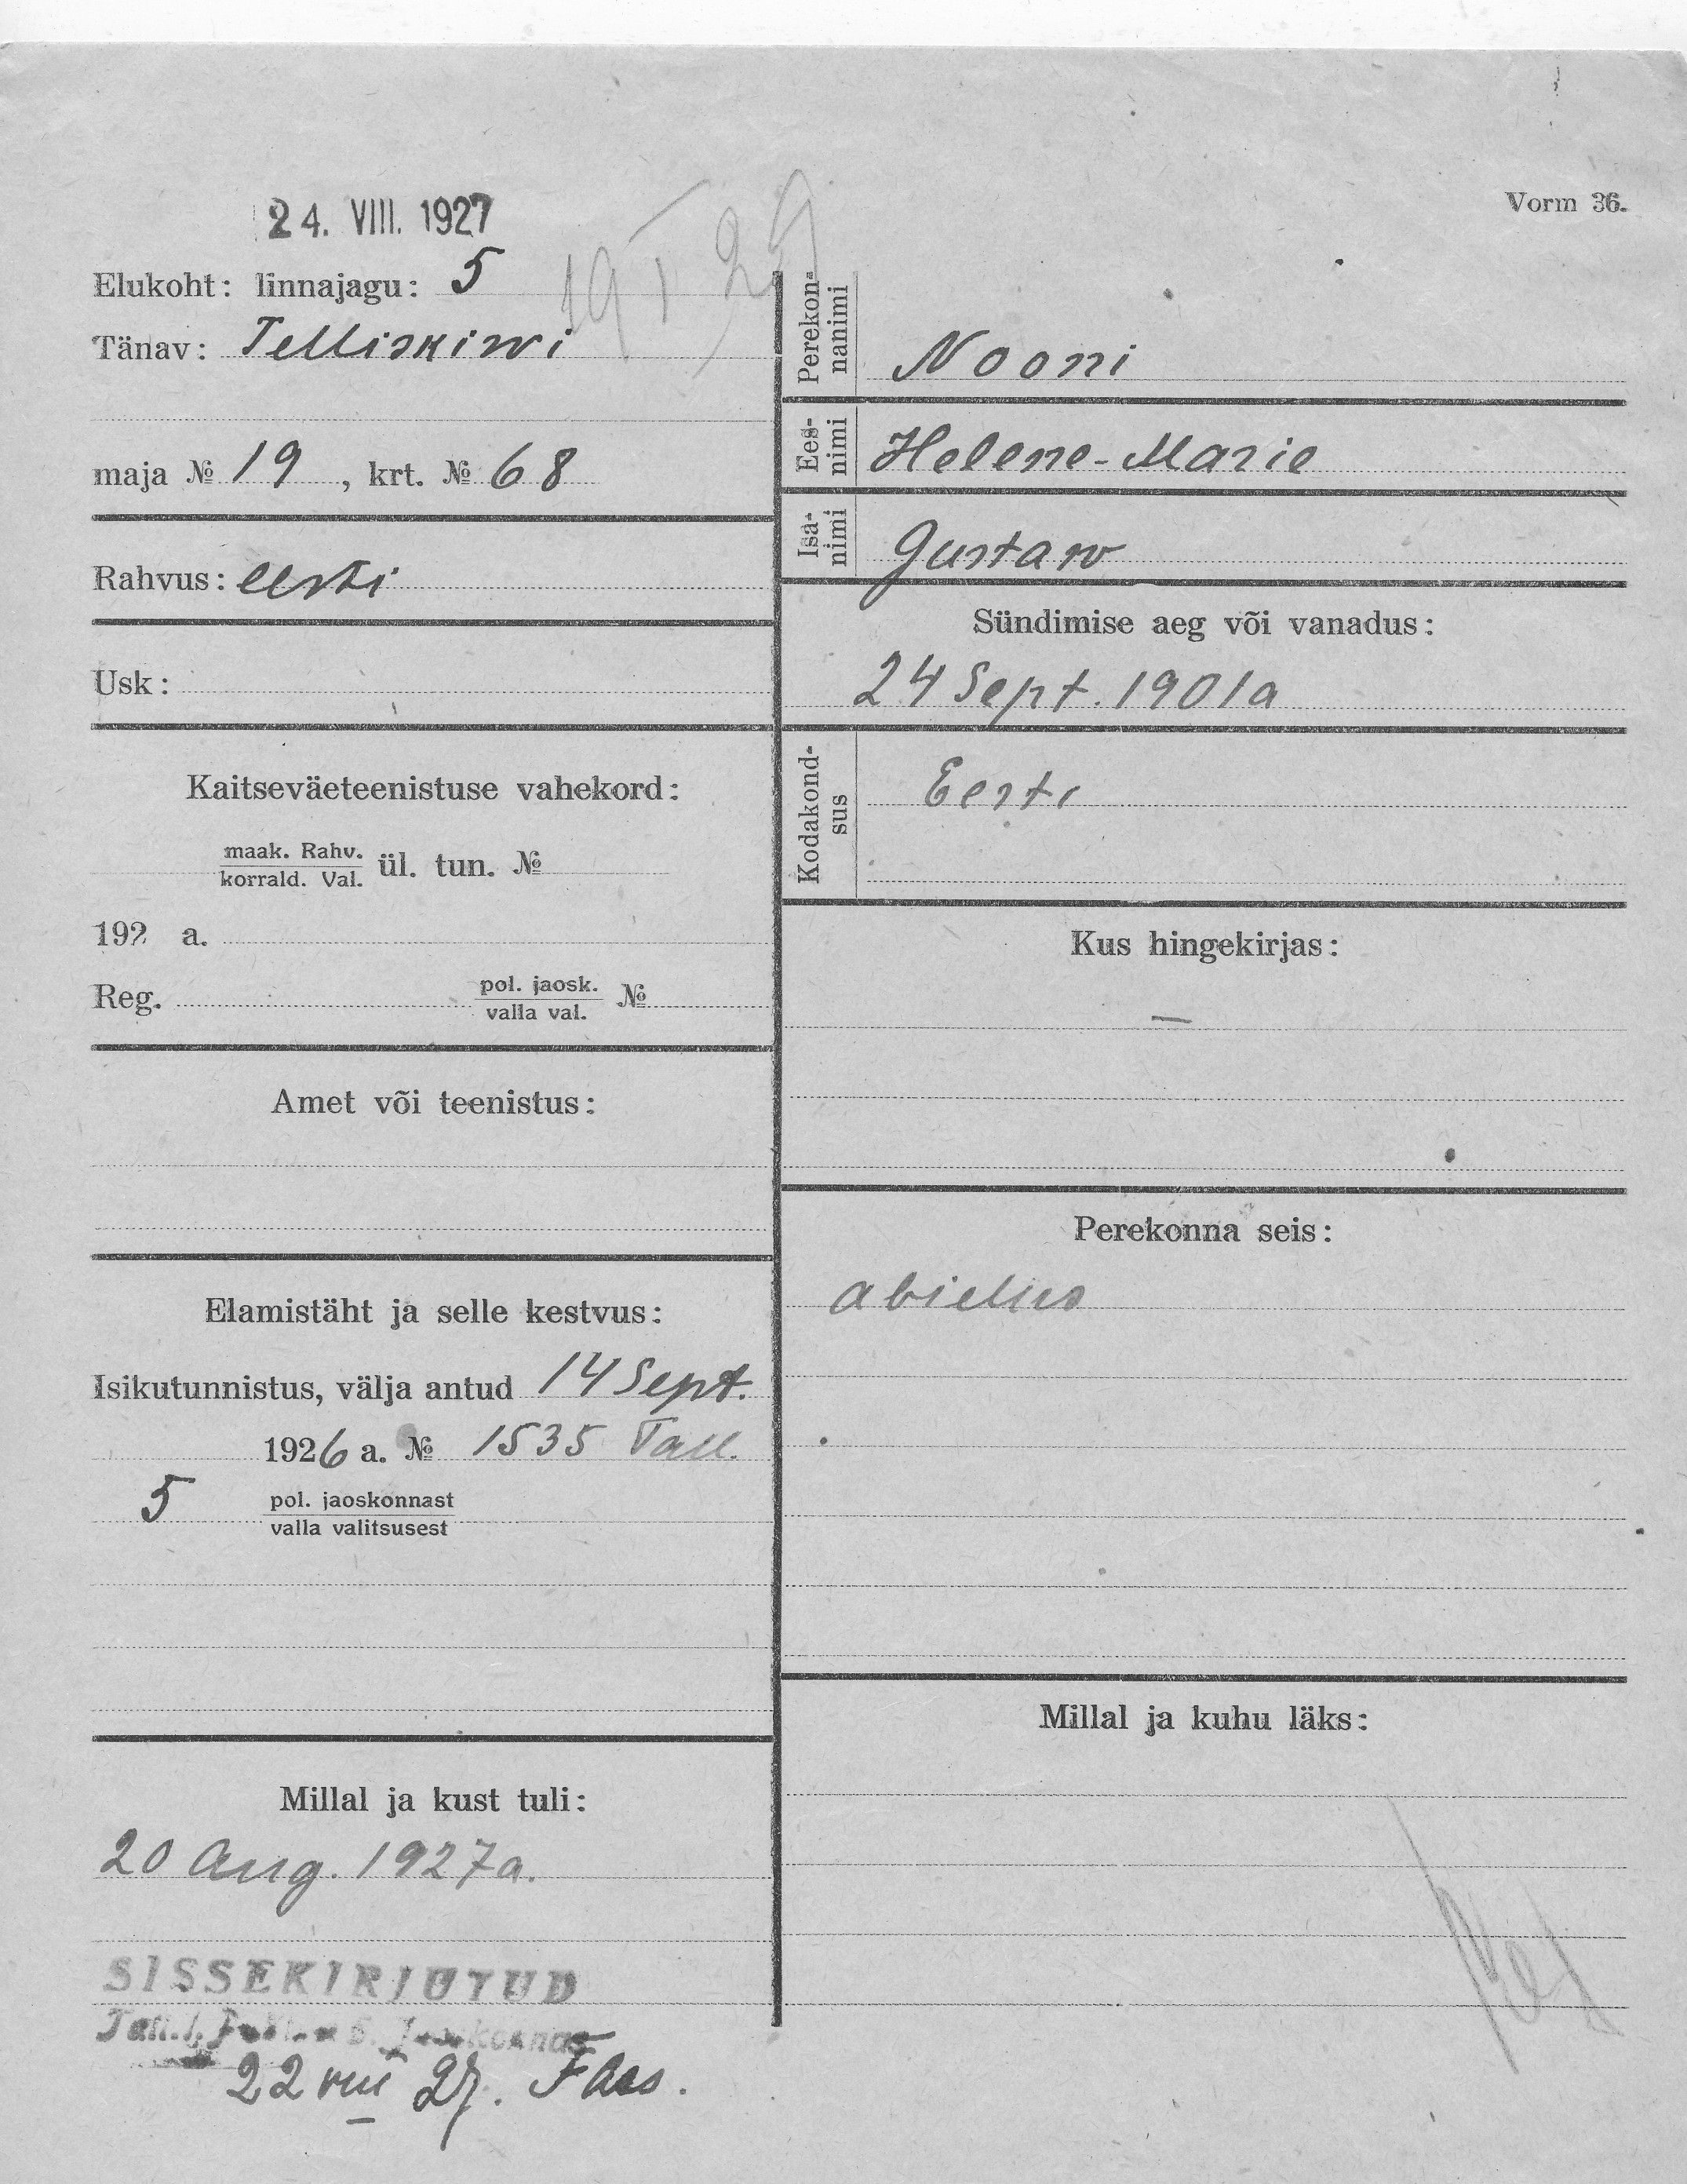 Vorm 36.
24. VIII. 1927
19 I 29
Elukoht: linnajagu: 5
Tänav: Telliskiwi
maja № 19, krt. № 68
Rahvus: eesti
Usk:
Kaitseväeteenistuse vahekord:
maak. Rahv.
korrald. Val. ül. tun. №
192 a.
Reg. pol. jaosk. №
valla val.
Amet või teenistus:
Elamistäht ja selle kestvus:
Isikutunnistus, välja antud 14 Sept.
1926 a. № 1535 Tall.
5 pol. jaoskonnast
valla valitsusest
Millal ja kust tuli:
20 Aug. 1927a.
SISSEKIRJUTUD
Tall. 5. Jaoskonnas
22 VIII 27.
Perekonnanimi
Nooni
Eesnimi
Helene-Marie
Isanimi
Gustaw
Sündimise aeg või vanadus:
24 Sept. 1901a
Kodakondsus
Eesti
Kus hingekirjas:
—
Perekonna seis:
abielus
Millal ja kuhu läks: